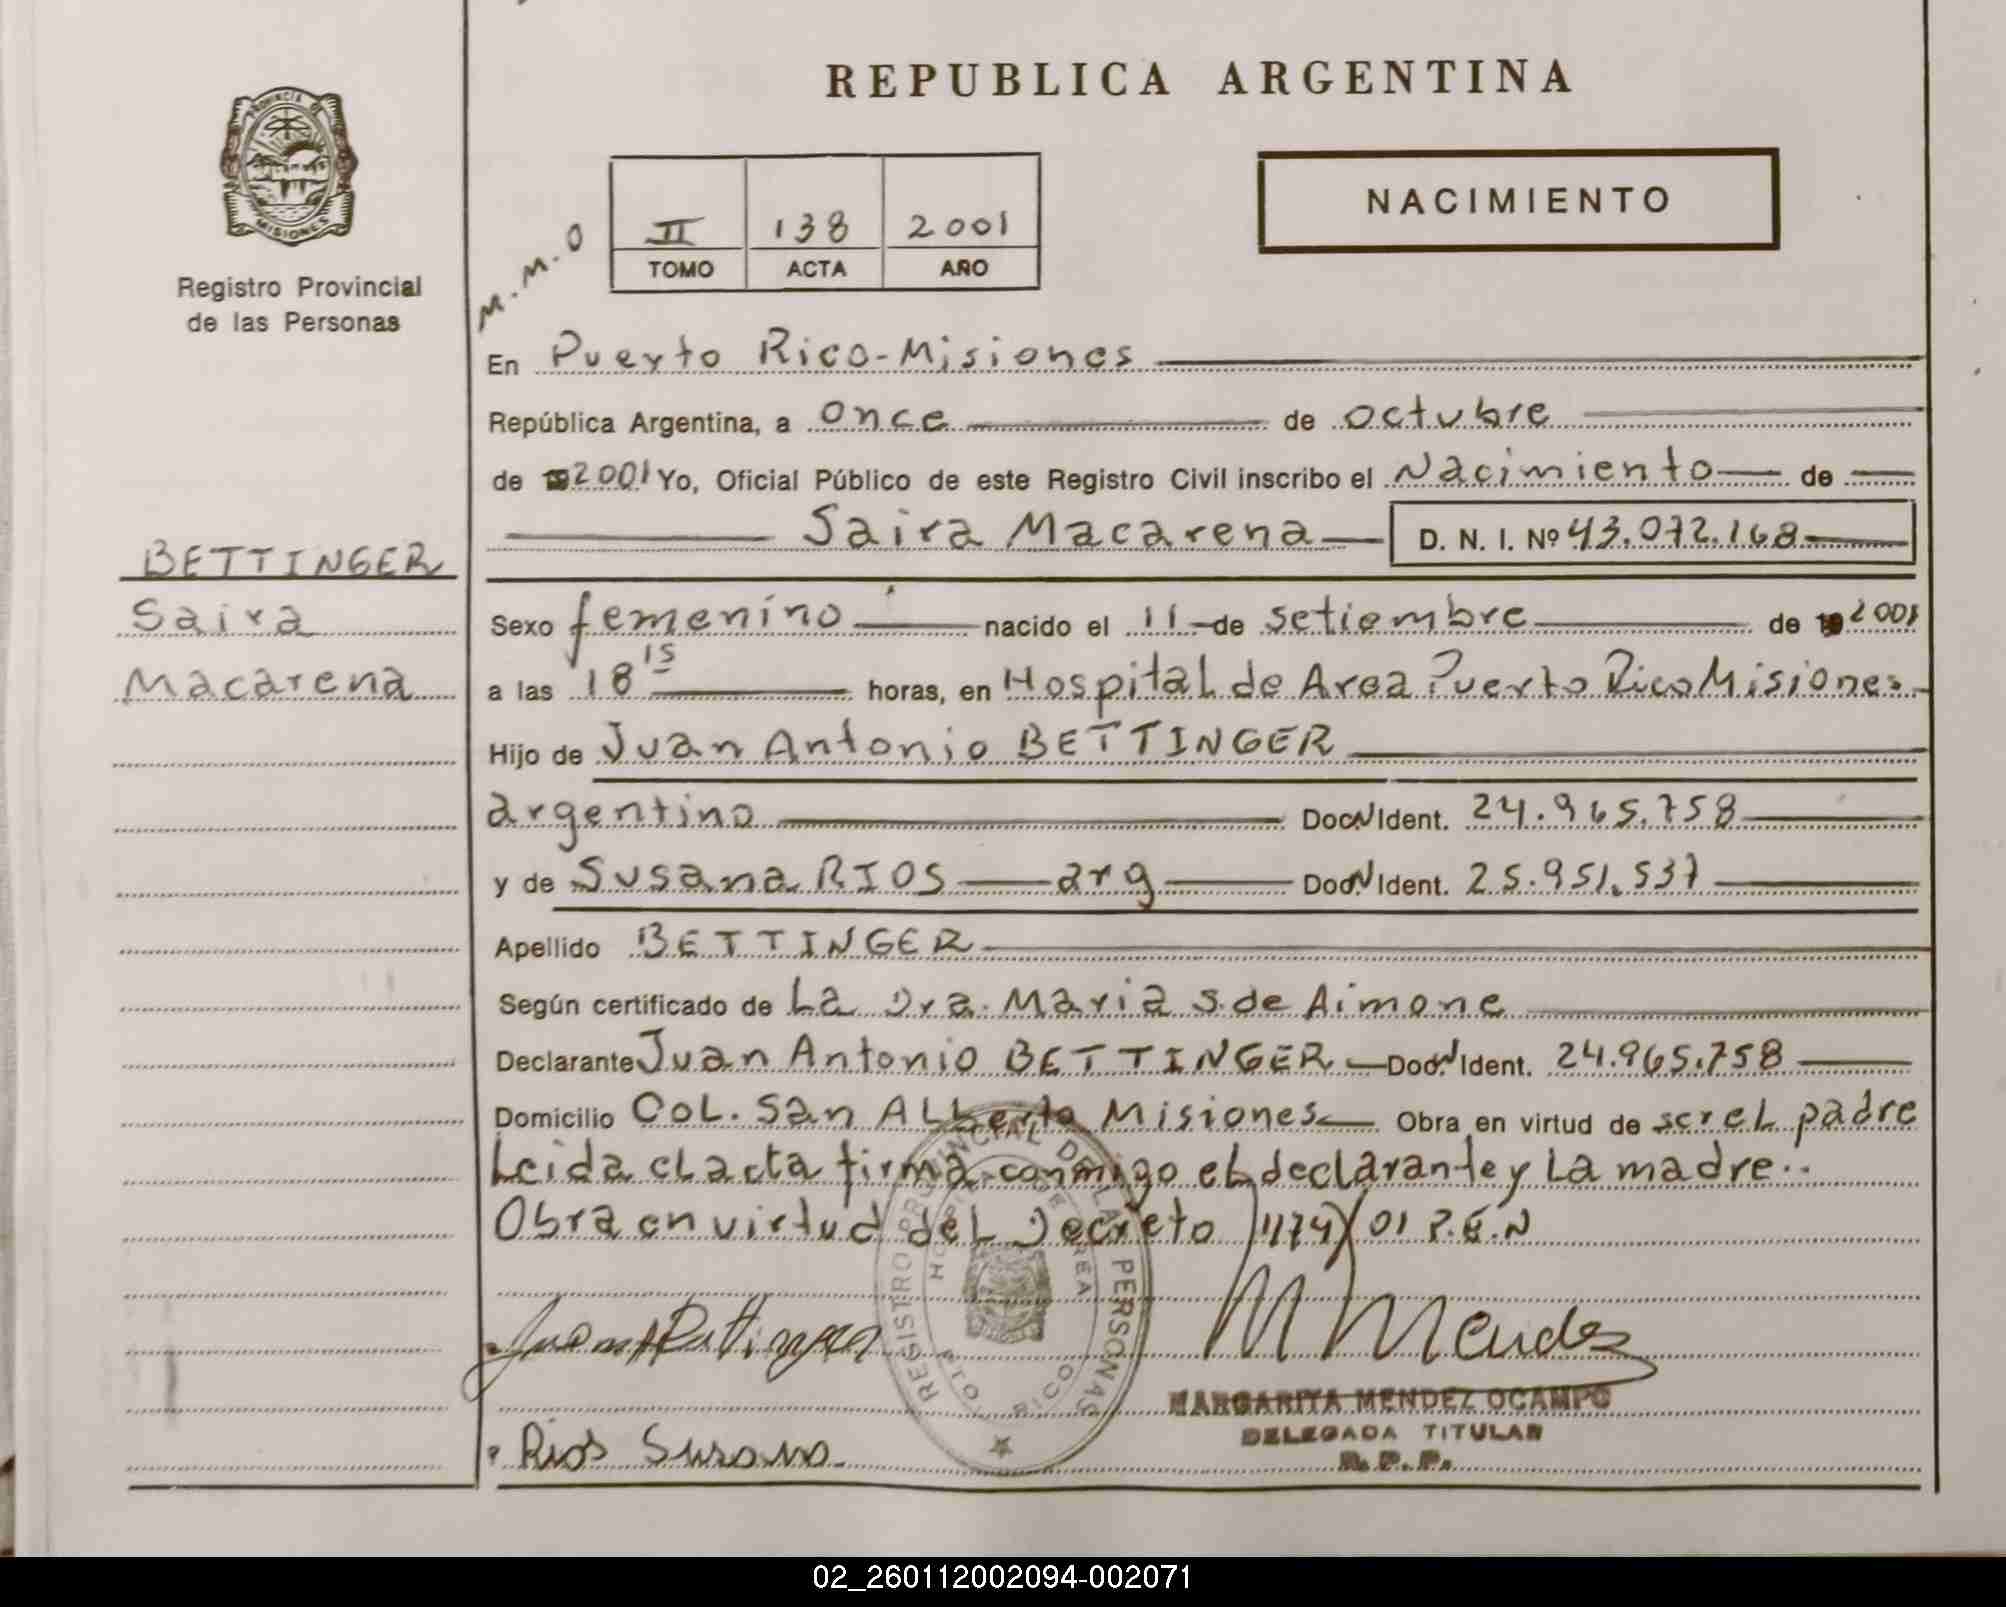 REPUBLICA ARGENTINA
PROVINCIA D
MISIONES
Registro Provincial
de las Personas
NACIMIENTO
M.M.O
II 138 2001
TOMO ACTA AÑO
En Puerto Rico-Misiones
República Argentina, a once de octubre
de 192001 Yo, Oficial Público de este Registro Civil inscribo el Nacimiento de
Saira Macarena D. N. I. Nº 43.072.168
BETTINGER
Saira
Macarena
Sexo femenino nacido el 11 de setiembre de 19 2001
a las 18 15 horas, en Hospital de Area Puerto Rico Misiones
Hijo de Juan Antonio BETTINGER
argentino Doc.N Ident. 24.965.758
y de Susana RIOS arg Doc.N Ident. 25.951.537
Apellido BETTINGER
Según certificado de La Dra. Maria S. de Aimone
Declarante Juan Antonio BETTINGER Doc.N Ident. 24.965.758
Domicilio COL. San ALberto Misiones Obra en virtud de ser eL padre
Leida eL acta firma conmigo eL declarante y La madre..
Obra en virtud deL Decreto 1174/01 P.E.N
REGISTRO PROVINCIAL DE LAS PERSONAS
HOSPITAL DE AREA
PTO RICO
Juan A Bettinger
M Mendez
MARGARITA MENDEZ OCAMPO
DELEGADA TITULAR
R. P. P.
Rios Susana
02_260112002094-002071